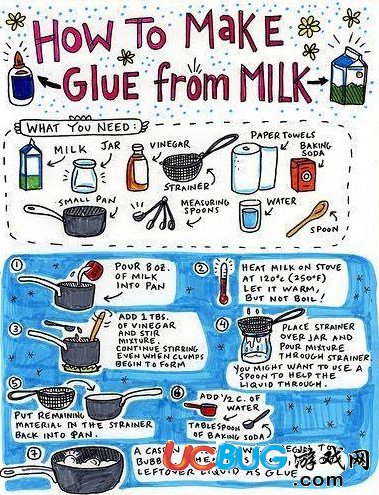 HOW TO MAKE
GLUE from MILK
WHAT YOU NEED:
MILK
JAR
VINEGAR
STRAINER
PAPER TOWELS
BAKING
SODA
SMALL PAN
MEASURING
SPOONS
WATER
SPOON
1
POUR 8 OZ.
OF MILK
INTO PAN
2
HEAT MILK ON STOVE
AT 120°C (250°F)
LET IT WARM,
BUT NOT BOIL!
3
ADD 1 TBS.
OF VINEGAR
AND STIR
MIXTURE
CONTINUE STIRRING
EVEN WHEN CLUMPS
BEGIN TO FORM
4
PLACE STRAINER
OVER JAR AND
POUR MIXTURE
THROUGH STRAINER.
YOU MIGHT WANT TO USE A
SPOON TO HELP THE
LIQUID THROUGH.
5
PUT REMAINING
MATERIAL IN THE STRAINER
BACK INTO PAN.
6
ADD 1/2 C. OF
WATER
TABLESPOON
OF BAKING SODA
7
A
BUBB
LEFTOVER LIQUID AS GLUE
UCBUG游戏网
.com